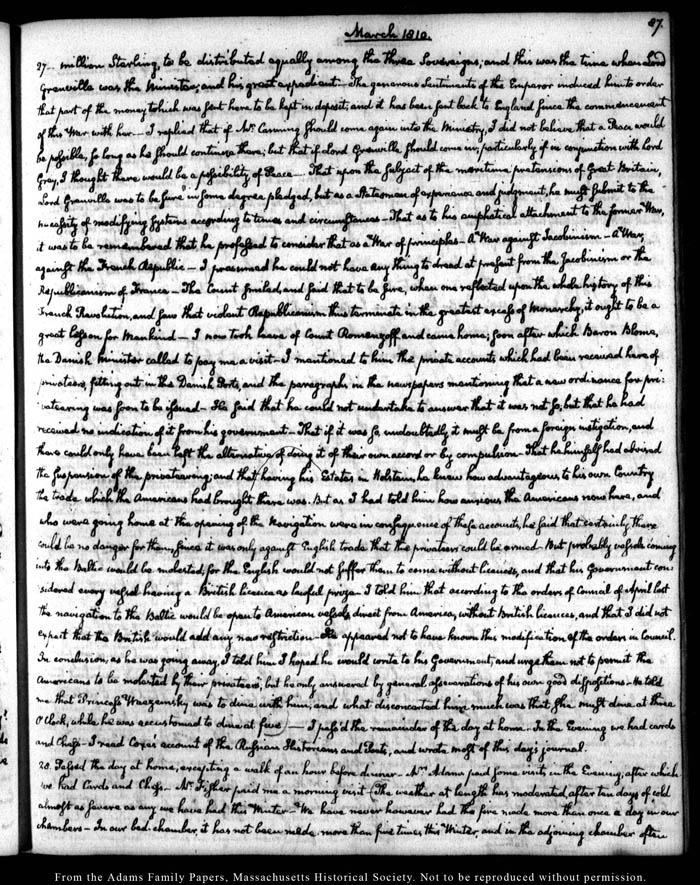 March 1810.
87.
27. million Sterling, to be distributed equally among the three Sovereigns; and this was the time when Lord
Grenville was the Minister, and his great expedient. The generous Sentiments of the Emperor induced him to order
that part of the money which was sent here to be kept in deposit; and it has been sent back to England since the commencement
of this War with her— I replied that if Mr. Canning should come again into the Ministry, I did not believe that a Peace would
be possible, so long as he should continue there; but that if Lord Grenville should come in, particularly if in conjunction with Lord
Grey, I thought there would be a possibility of Peace— That upon the subject of the maritime pretensions of Great Britain,
Lord Grenville was to be sure in some degree pledged, but as a Statesman of experience and judgment, he must submit to the
necessity of modifying Systems according to times and circumstances— That as to his emphatical attachment to the former War,
it was to be remembered that he professed to consider that as a War of principles— A War against Jacobinism— A War,
against the French Republic— I presumed he could not have any thing to dread at present from the Jacobinism or the
Republicanism of France— The Count smiled, and said that to be sure, when one reflected upon the whole history of this
French Revolution, and saw that violent Republicanism thus terminate in the greatest excess of Monarchy, it ought to be a
great lesson for Mankind— I now took leave of Count Romanzoff, and came home; soon after which Baron Blome,
the Danish Minister called to pay me a visit— I mentioned to him the private accounts which had been received here of
privateers, fitting out in the Danish Ports, and the paragraphs in the newspapers mentioning that a new ordinance for pri:
vateering was soon to be issued— He said that he could not undertake to answer that it was not so, but that he had
received no indication of it from his government— That if it was so, undoubtedly it must be from a foreign instigation, and
there could only have been left the alternative of doing it of their own accord or by compulsion— That he himself had advised
the suspension of the privateering; and that having his Estates in Holstein, he knew how advantageous to his own Country
the trade which the Americans had brought there was. But as I had told him how anxious the Americans now here, and
who were going home at the opening of the Navigation were in consequence of these accounts, he said that certainly there
could be no danger for them, since it was only against English trade that the privateers could be armed— But probably vessels coming
into the Baltic would be molested; for the English would not suffer them to come without licences, and that his Government con:
sidered every vessel having a British licence as lawful prize— I told him that according to the orders of Council of April last
the navigation to the Baltic would be open to American vessels direct from America, without British licences, and that I did not
expect that the British would add any new restriction— He appeared not to have known this modification of the orders in Council.
In conclusion, as he was going away, I told him I hoped he would write to his Government, and urge them not to permit the
Americans to be molested by their privateers; but he only answered by general asseverations of his own good dispositions— He told
me that Princess Wiazemsky was to dine with him; and what disconcerted him much was that she must dine at three
O'Clock, while he was accustomed to dine at five)— I pass'd the remainder of the day at home— In the Evening we had cards
and Chess— I read Coxe's account of the Russian Historians and Poets, and wrote most of this day's journal.
28. Passed the day at home, excepting a walk of an hour before dinner— Mrs. Adams paid some visits in the Evening, after which
we had Cards and Chess. Mr. Fisher paid me a morning visit (The weather at length has moderated, after ten days of cold
almost as severe as any we have had this Winter— We have never however had the fire made more than once a day in our
chambers— In our bed chamber, it has not been made more than five times this Winter, and in the adjoining chamber often
From the Adams Family Papers, Massachusetts Historical Society. Not to be reproduced without permission.